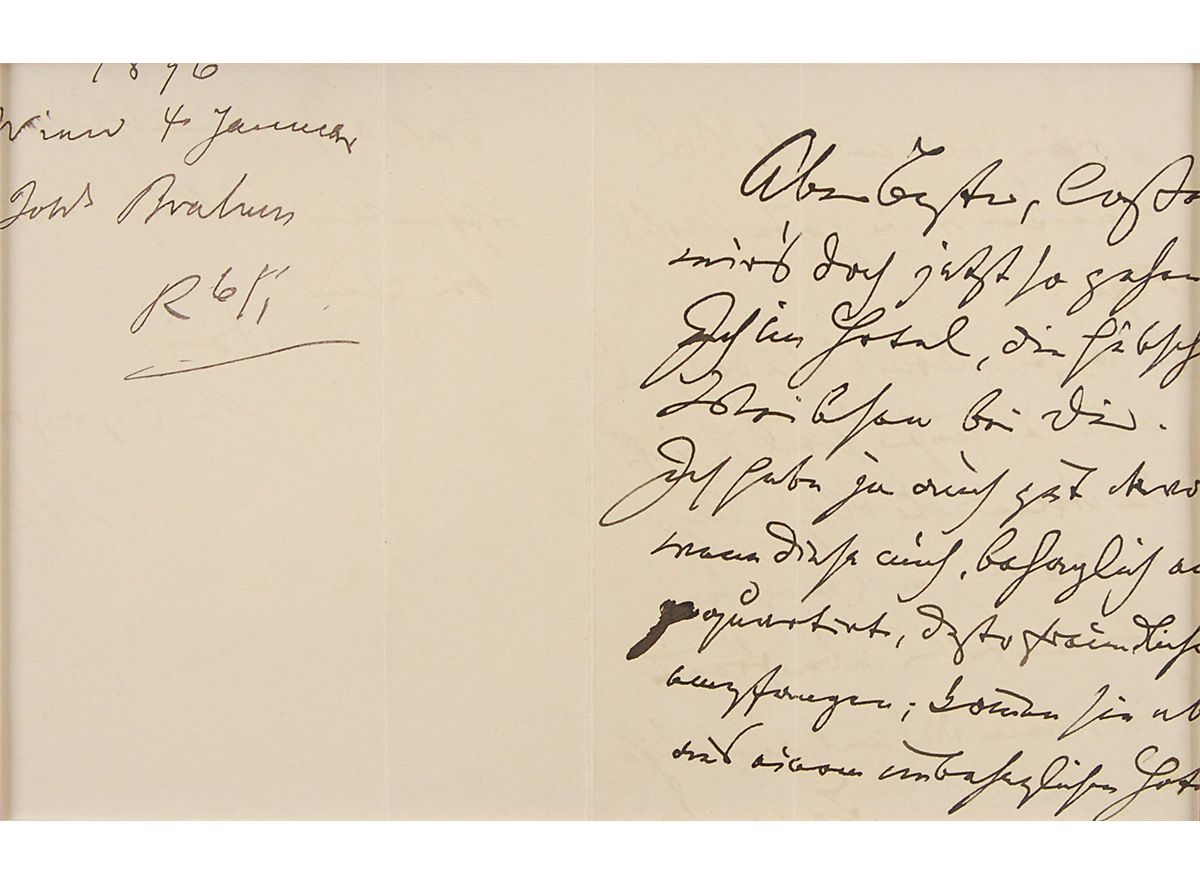 1896
Wien 4 Januar
Johs Brahms
R 6/1
Aber Bester, laßen
wir's doch jetzt so gehen
Ich im Hotel, die hübsch
Weibchen bei Dir.
Ich habe ja auch gut
wenn diese auch, behaglich
quartirt, desto freundliche
empfangen; kommen sie
aus einem unbehaglichen Hot